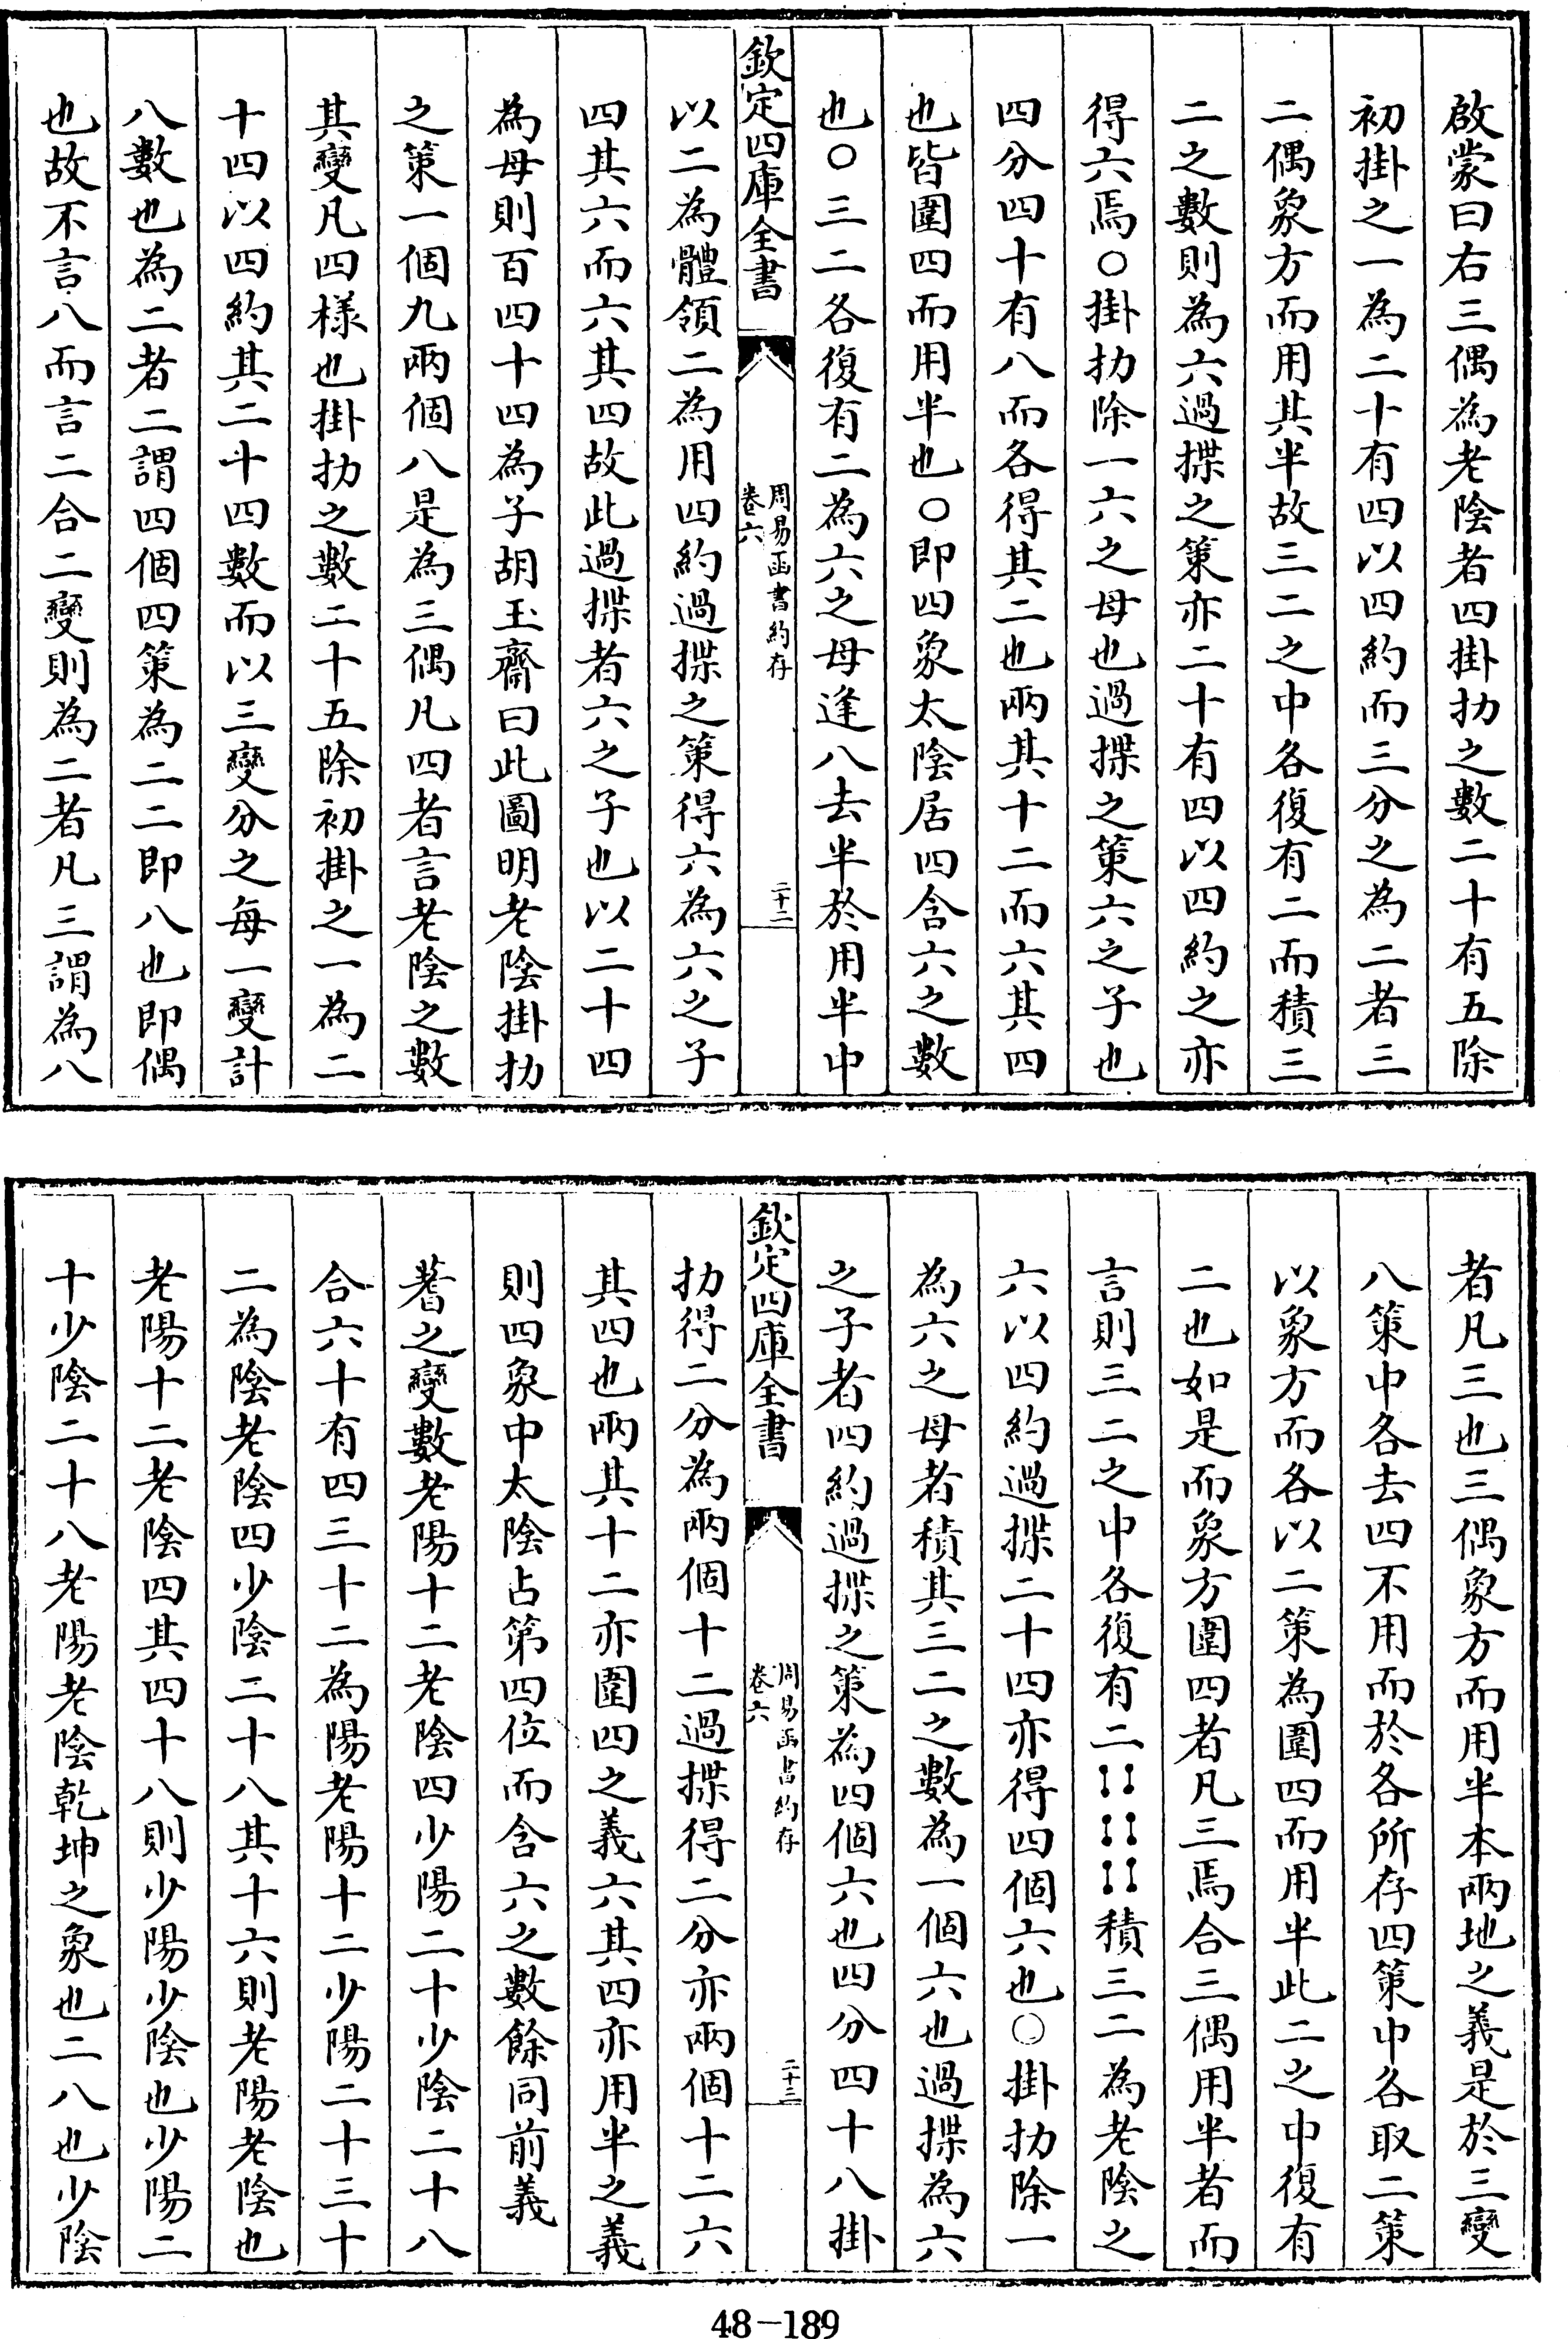 啟蒙曰右三偶為老陰者四掛扐之數二十有五除
初掛之一為二十有四以四約而三分之為二者三
二偶象方而用其半故三二之中各復有二而積三
二之數則為六過揲之策亦二十有四以四約之亦
得六焉○掛扐除一六之母也過揲之策六之子也
四分四十有八而各得其二也兩其十二而六其四
也皆圍四而用半也○即四象太陰居四含六之數
也○三二各復有二為六之母逢八去半於用半中
欽定四庫全書
周易函書約存
卷六
二十二
以二為體領二為用四約過揲之策得六為六之子
四其六而六其四故此過揲者六之子也以二十四
為母則百四十四為子胡玉齋曰此圖明老陰掛扐
之策一個九兩個八是為三偶凡四者言老陰之數
其變凡四樣也掛扐之數二十五除初掛之一為二
十四以四約其二十四數而以三變分之每一變計
八數也為二者二謂四個四策為二二即八也即偶
也故不言八而言二合二變則為二者凡三謂為八
者凡三也三偶象方而用半本兩地之義是於三變
八策中各去四不用而於各所存四策中各取二策
以象方而各以二策為圍四而用半此二之中復有
二也如是而象方圍四者凡三焉合三偶用半者而
言則三二之中各復有二積三二為老陰之
六以四約過揲二十四亦得四個六也○掛扐除一
為六之母者積其三二之數為一個六也過揲為六
之子者四約過揲之策為四個六也四分四十八掛
欽定四庫全書
周易函書約存
卷六
二十三
扐得二分為兩個十二過揲得二分亦兩個十二六
其四也兩其十二亦圍四之義六其四亦用半之義
則四象中太陰占第四位而含六之數餘同前義
蓍之變數老陽十二老陰四少陽二十少陰二十八
合六十有四三十二為陽老陽十二少陽二十三十
二為陰老陰四少陰二十八其十六則老陽老陰也
老陽十二老陰四其四十八則少陽少陰也少陽二
十少陰二十八老陽老陰乾坤之象也二八也少陰
48-189